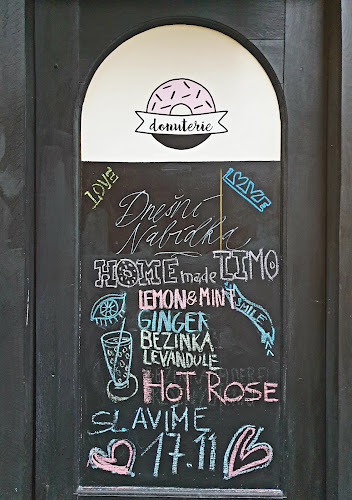 donuterie
LOVE LOVE
Dnešní
Nabídka
HOMEmade LIMO
LEMON & MINT
GINGER SMILE
BEZINKA
LEVANDULE
HOT ROSE
SLAVIME
17.11